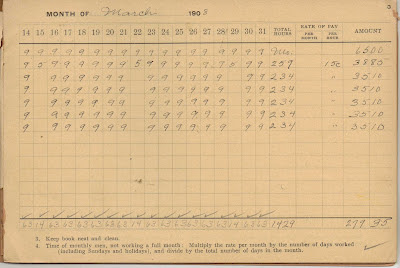 MONTH OF March 1908
14 15 16 17 18 19 20 21 22 23 24 25 26 27 28 29 30 31 TOTAL HOURS RATE OF PAY PER MONTH PER HOUR AMOUNT
9 9 9 9 9 9 9 9 9 9 9 9 9 9 9 9 9 9 65 00
9 5 9 9 9 9 9 9 5 9 9 9 9 9 9 5 9 9 259 15c 38 85
9 9 9 9 9 9 9 9 9 9 9 9 9 9 9 234 " 35 10
9 9 9 9 9 9 9 9 9 9 9 9 9 9 9 234 " 35 10
9 9 9 9 9 9 9 9 9 9 9 9 9 9 9 234 " 35 10
9 9 9 9 9 9 9 9 9 9 9 9 9 9 9 234 " 35 10
9 9 9 9 9 9 9 9 9 9 9 9 9 9 9 234 " 35 10
1429 279 35
3. Keep book neat and clean.
4. Time of monthly men, not working a full month: Multiply the rate per month by the number of days worked
(including Sundays and holidays), and divide by the total number of days in the month.